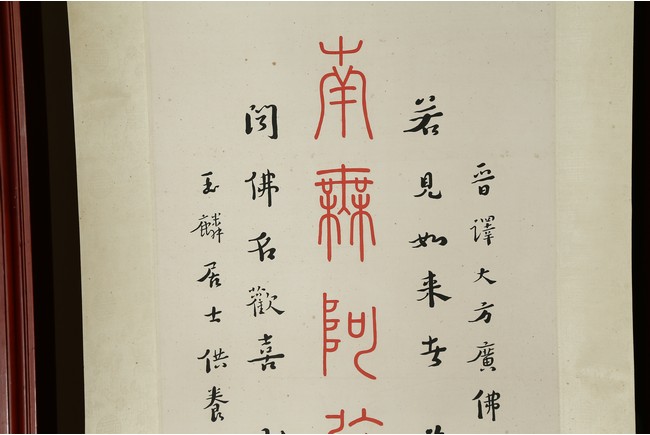 晋譯大方廣佛
若見如来者
南無阿
聞佛名歡喜
玉麟居士供養